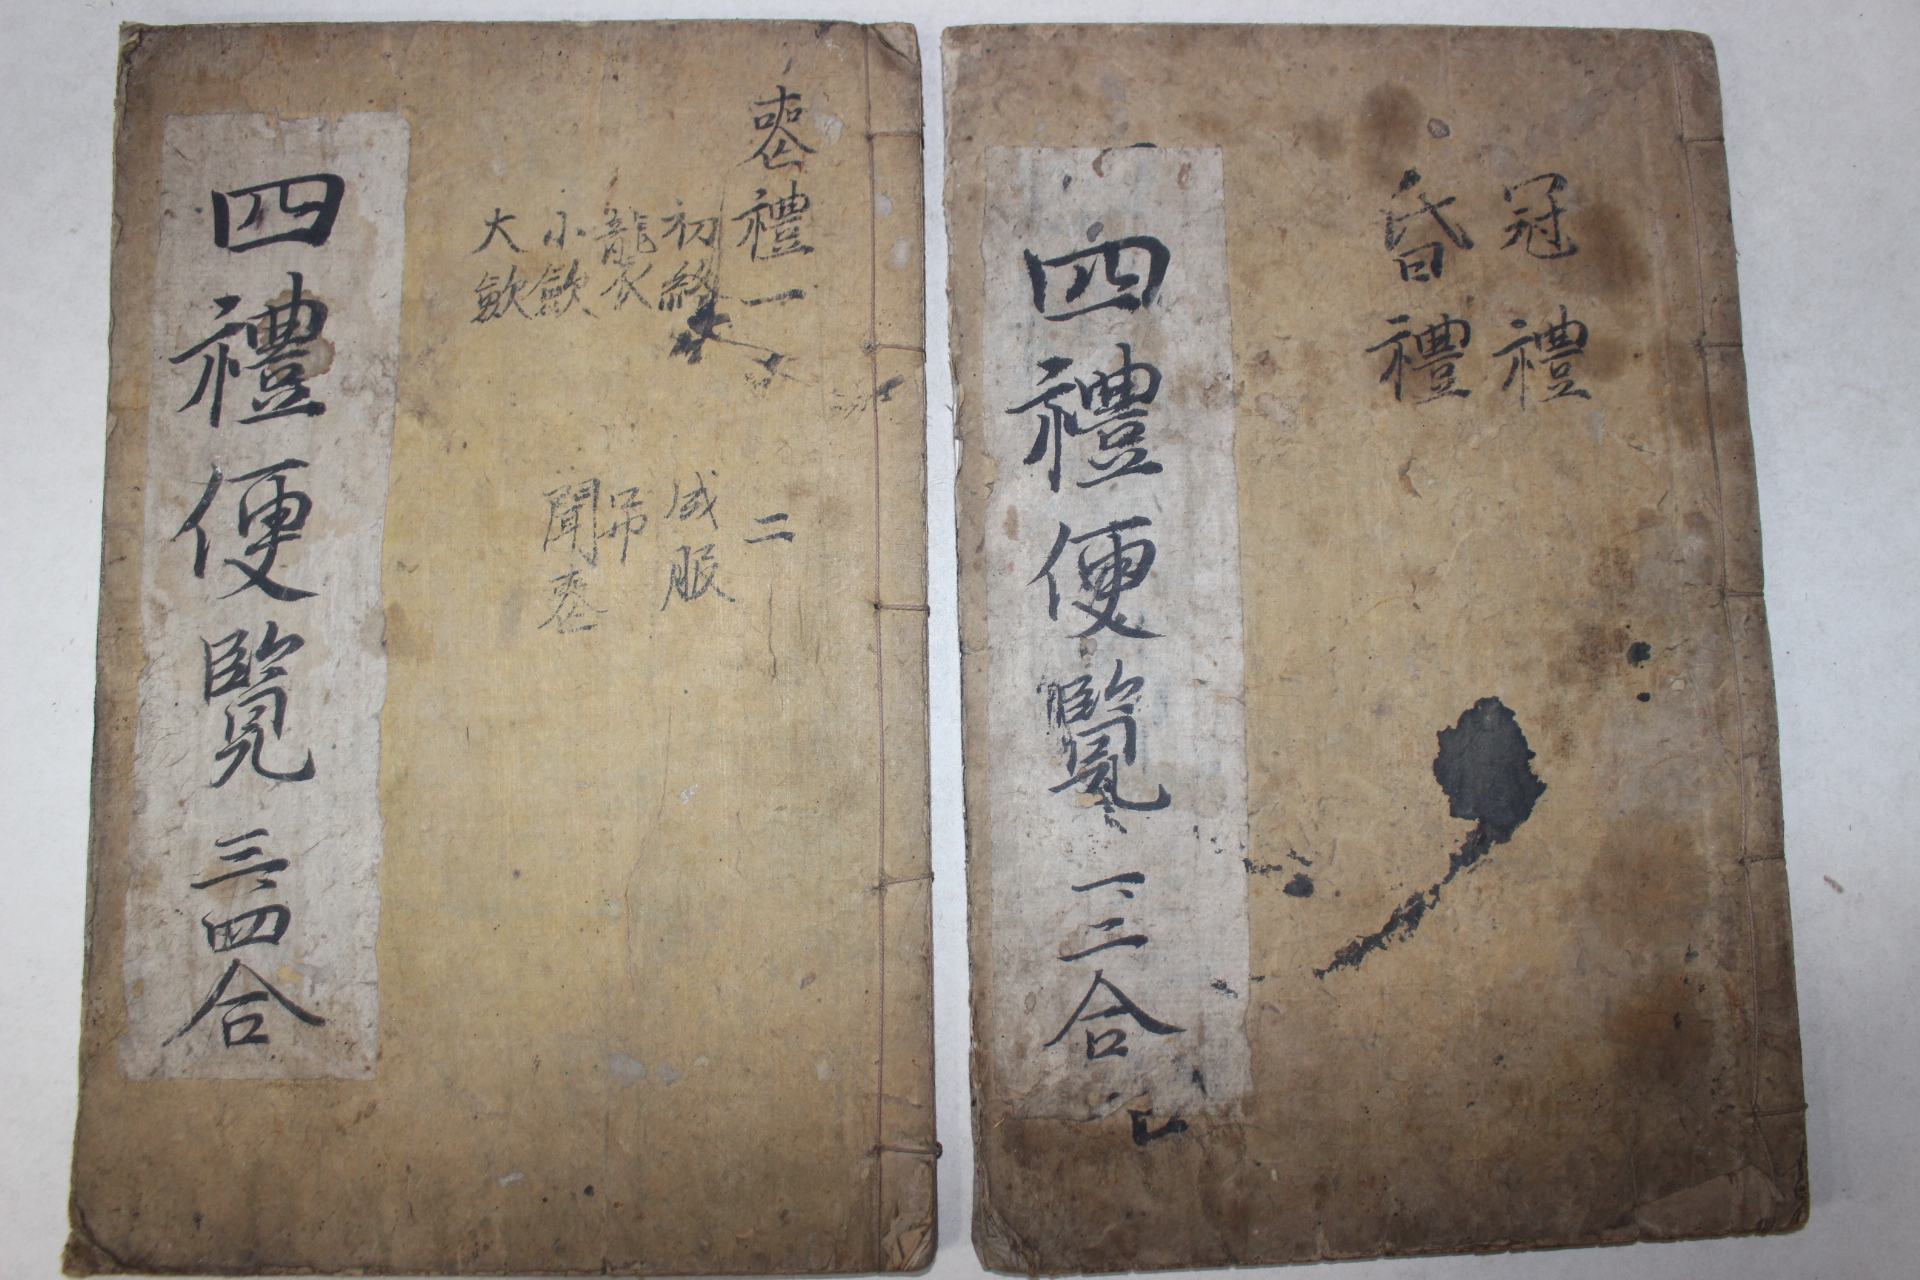 冠禮
昏禮
四禮便覽 一二合
喪禮一
初終
襲
小歛
大歛
二
成服
吊
聞喪
四禮便覽 三四合